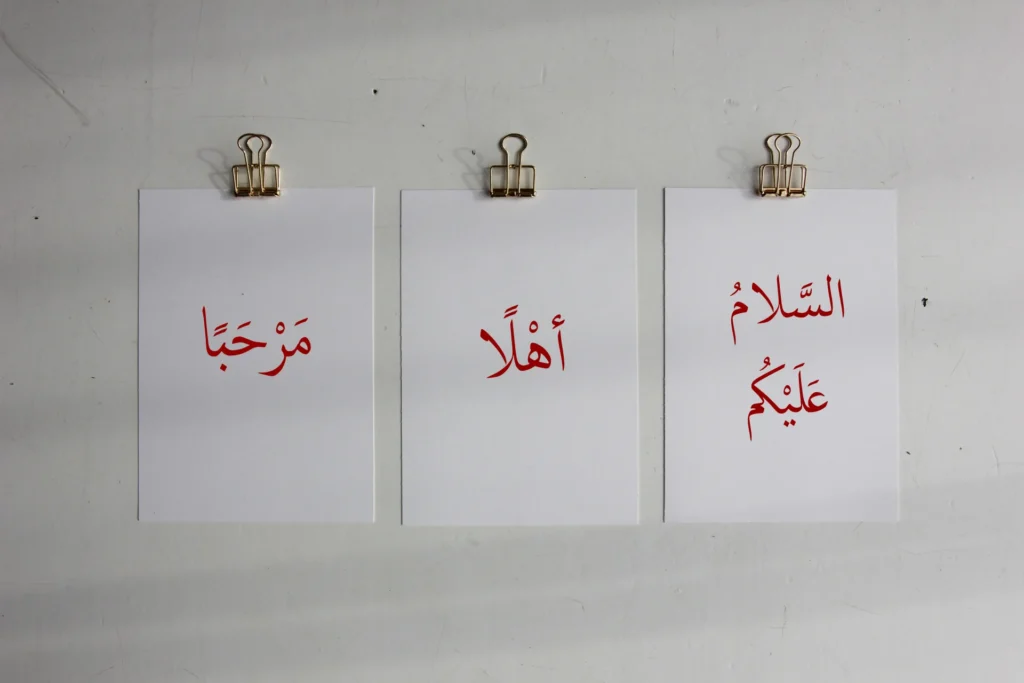 السَّلامُ
عَلَيْكُم
أَهْلًا
مَرْحَبًا